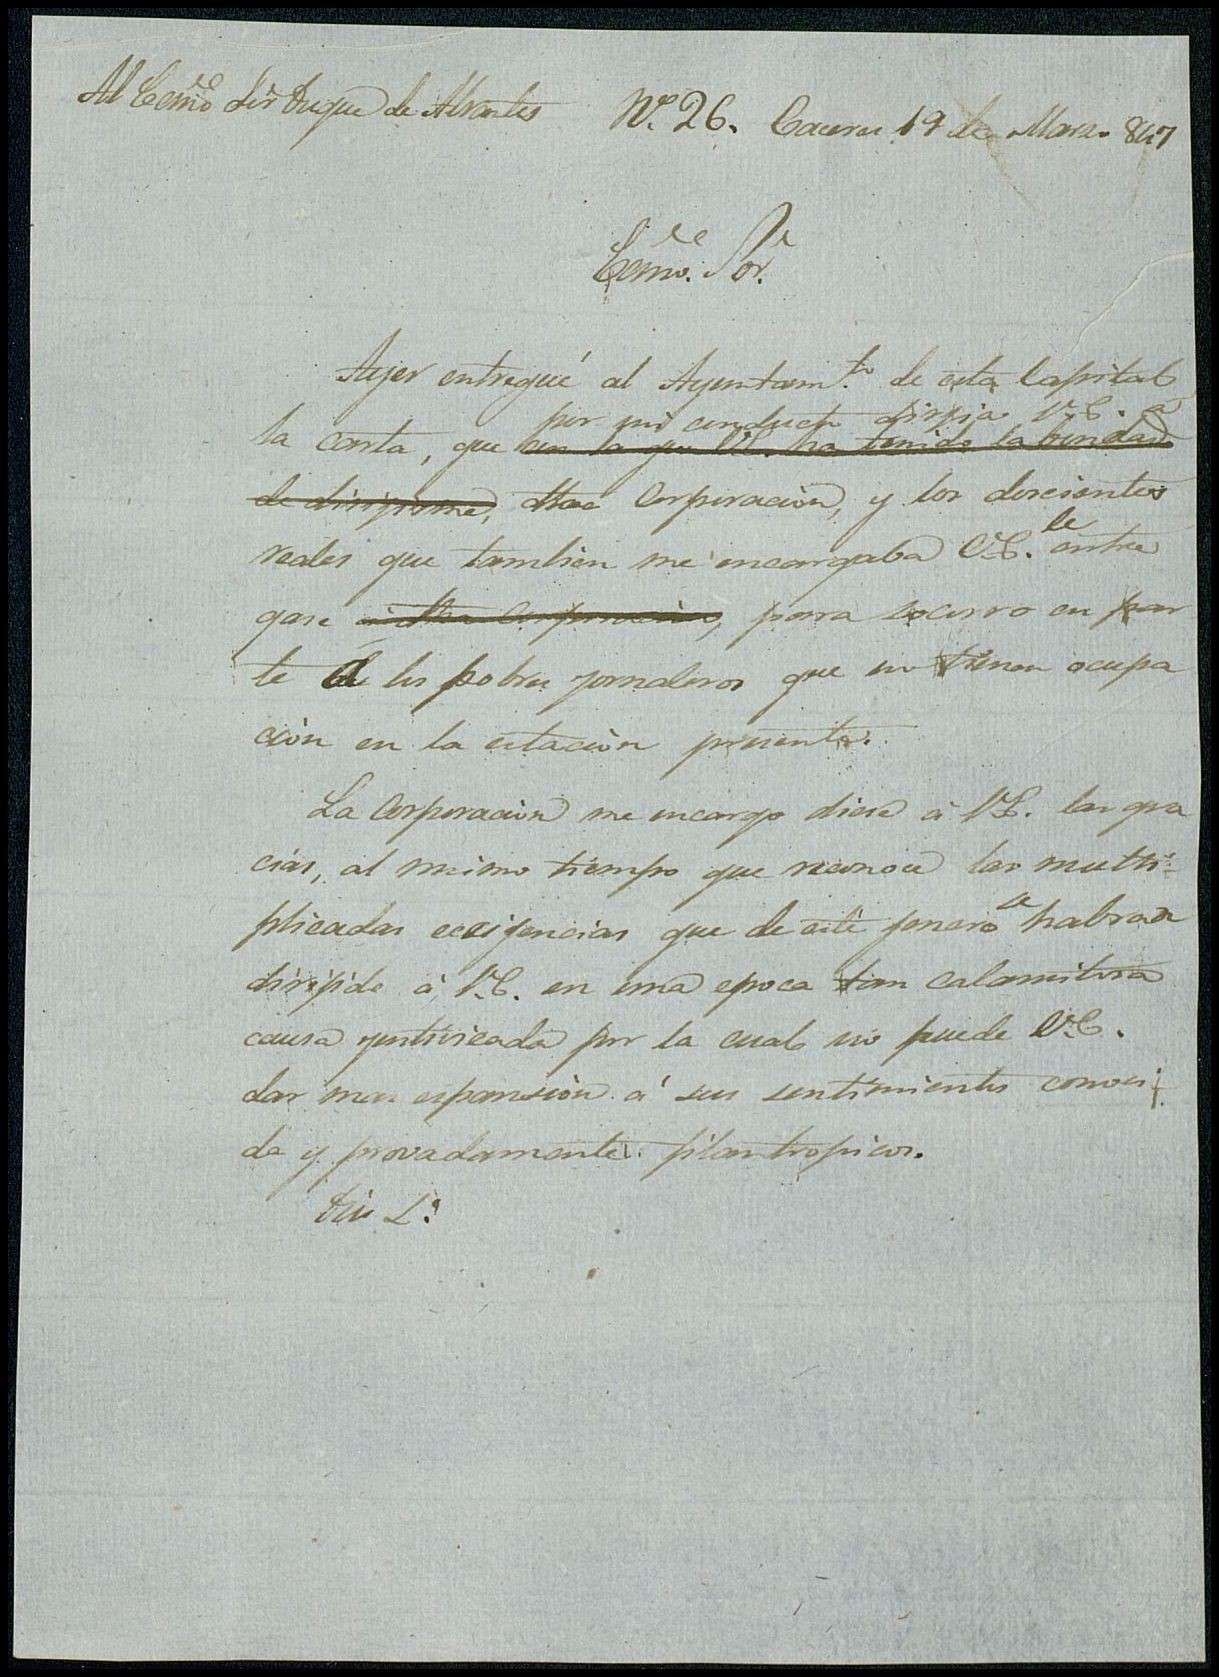 Al Ecmo Sor Duque de Abrantes
Nº. 26. Caceres 19 de Marzo 847
Ecmo. Sor.
Ayer entregué al Ayuntamto. de esta Capital
por mi conducto dirijia V.E. a
la carta, que con la que V.E. ha tenido la bondad
de dirigirme, dha Corporacion, y los doscientos
reales que tambien me encargaba V.E. le entre
gase á dha Corporacion, para socorro en par
te de los pobres jornaleros que no tienen ocupa
cion en la estacion presente.
La Corporacion me encargo diese á V.E. las gra
cias, al mismo tiempo que reconoce las multi-
plicadas ecsijencias que de este jenero se habran
dirijido á V.E. en una epoca tan calamitosa
causa justificada por la cual no puede V.E.
dar mas espansion á sus sentimientos conoci
da y provadamente filantropicos.